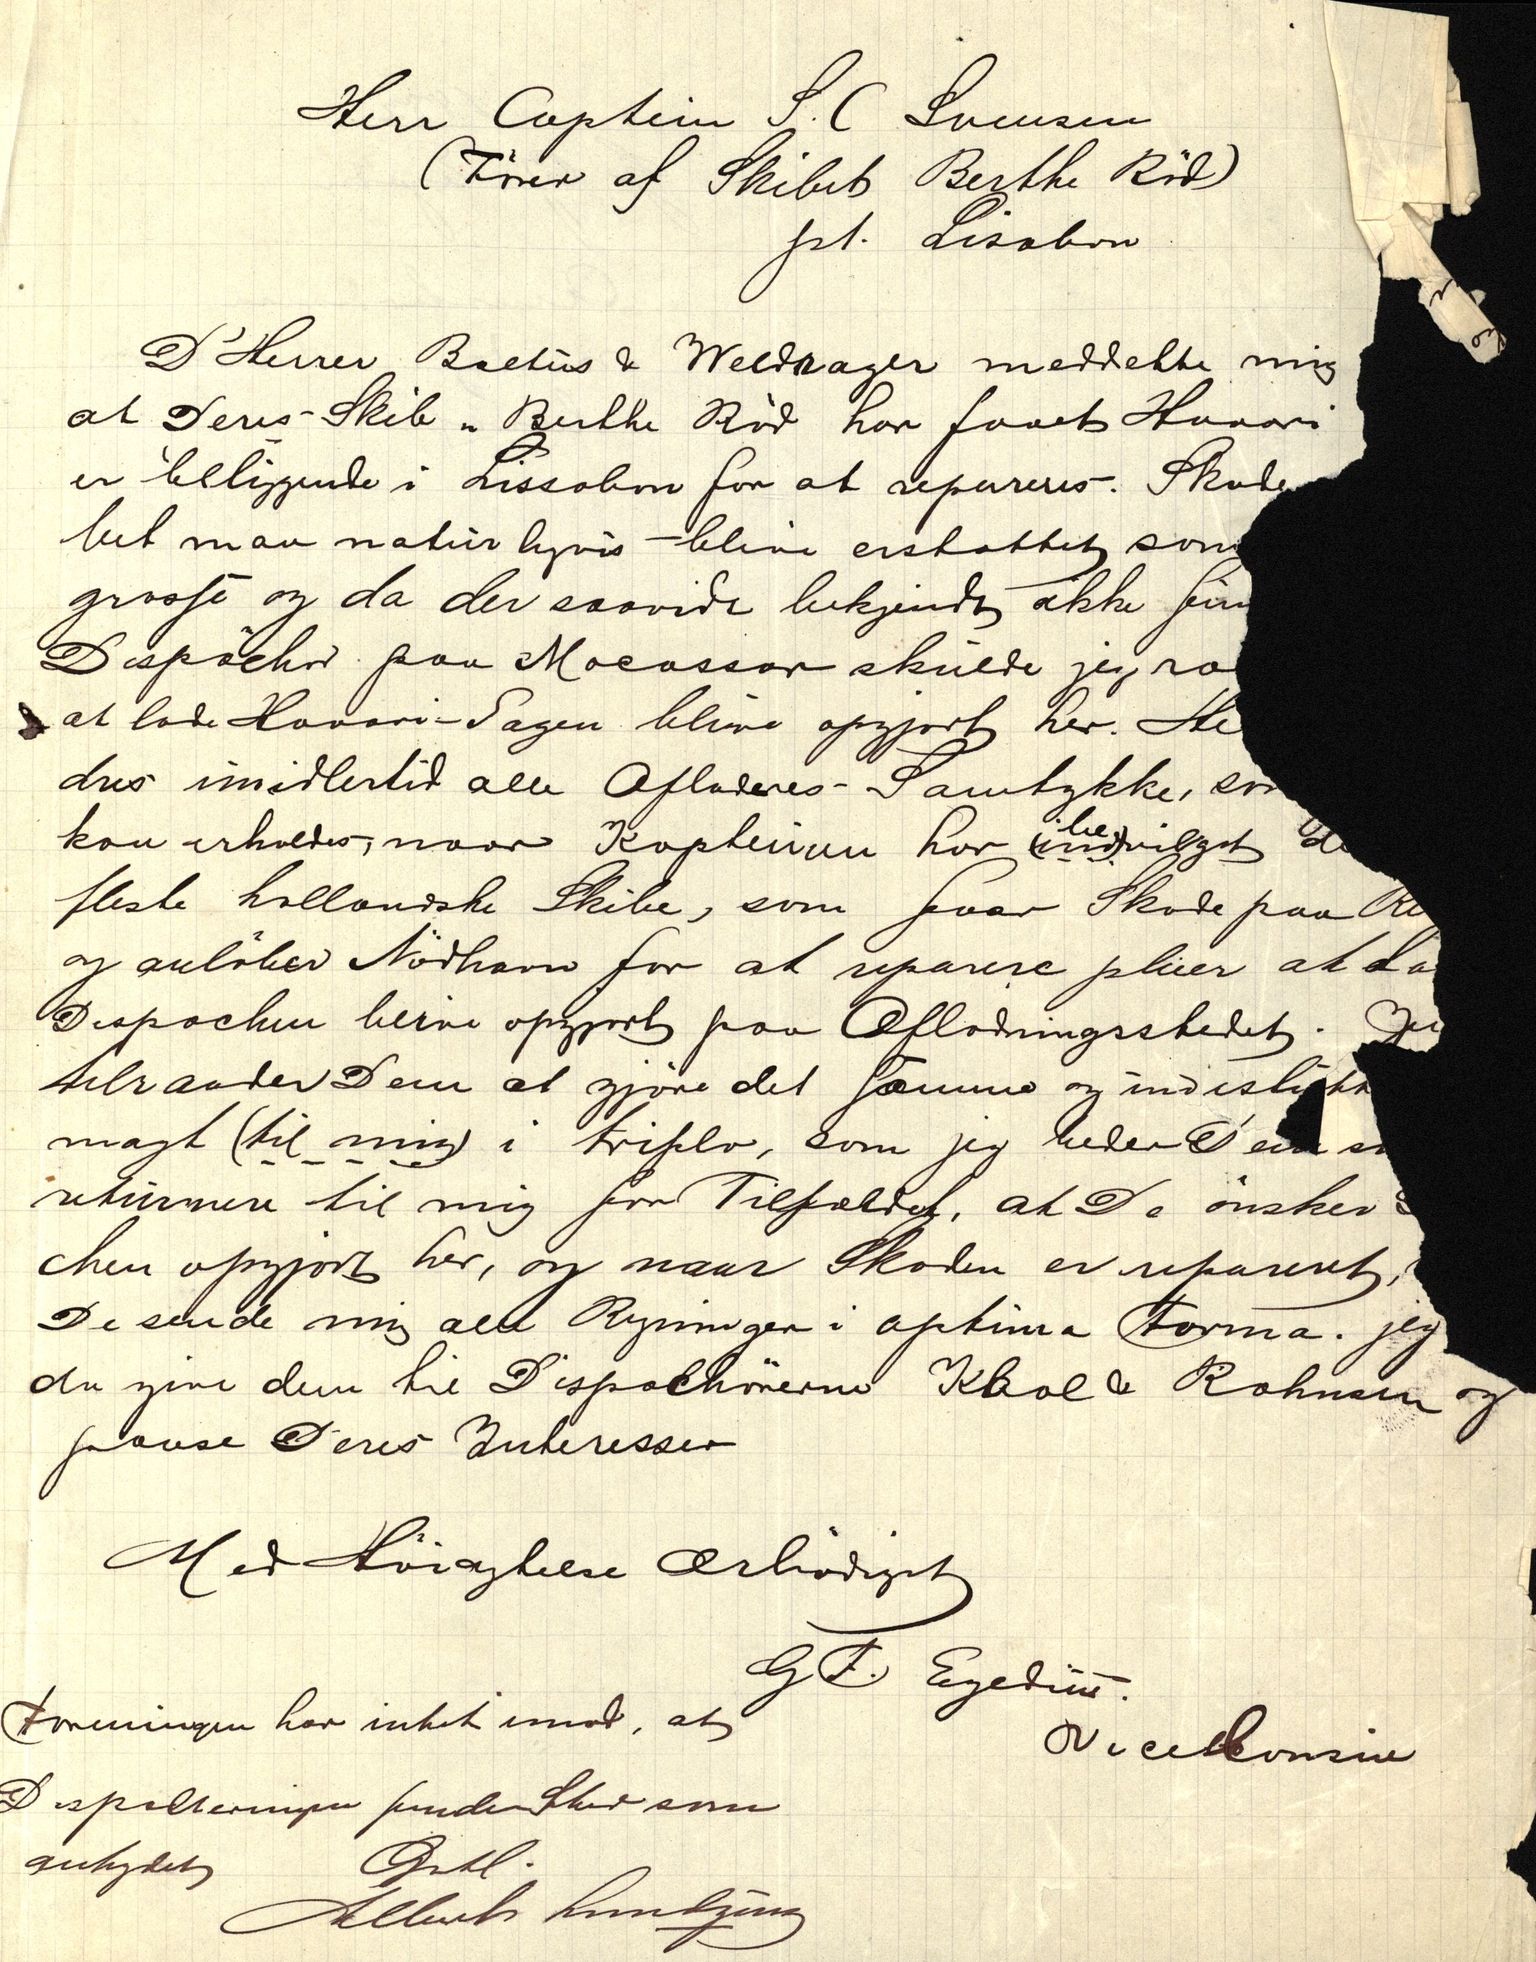 Herr Captein S. C Svensen
(Förer af Skibet Berthe Röd)
pt. Lissabon
D'Herrer Baelüs & Weddrager meddelte mig
at Deres Skib „ Berthe Röd har faaet Havari
er beliggende i Lissabon for at repareres. Skade
bet maa natürligvis blive erstattet som
grosse og da der saavidt bekjendt ikke fin
Despachör paa Macassar skülde jeg ra
at lade Havari-Sagen blive opgjort her. He
dres imidlertid alle Afladeres Samtykke, som
kan erholdes, naar Kapteinen har (ind) be vilget de
fleste hollandske Skibe, som faar Skade paa Re
og anlöber Nödhavn for at reparere pleier at la
Despachen blive opgjort paa Afladningsstedet. Jeg
tilraader Dem at gjöre det samme og
magt (til mig) i triplo, som jeg beder Dem
retürnere til mig for Tilfældet, at De önsker
chen opgjort her, og naar Skaden er reparert,
De sende mig alle Regninger i optima Forma. jeg
da give dem til Dispachörerne & Rahusen og
passe Deres Interesser
Med Höiagtelse Ærbödigst
G F. Egediüs.
ViceConsül
Foreningen har intet imod, at
Despacheringen finder Sted som
antydet